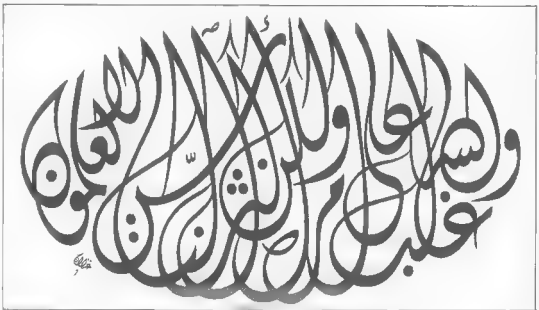 والله غالب على أمره ولكن أكثر الناس لا يعلمون